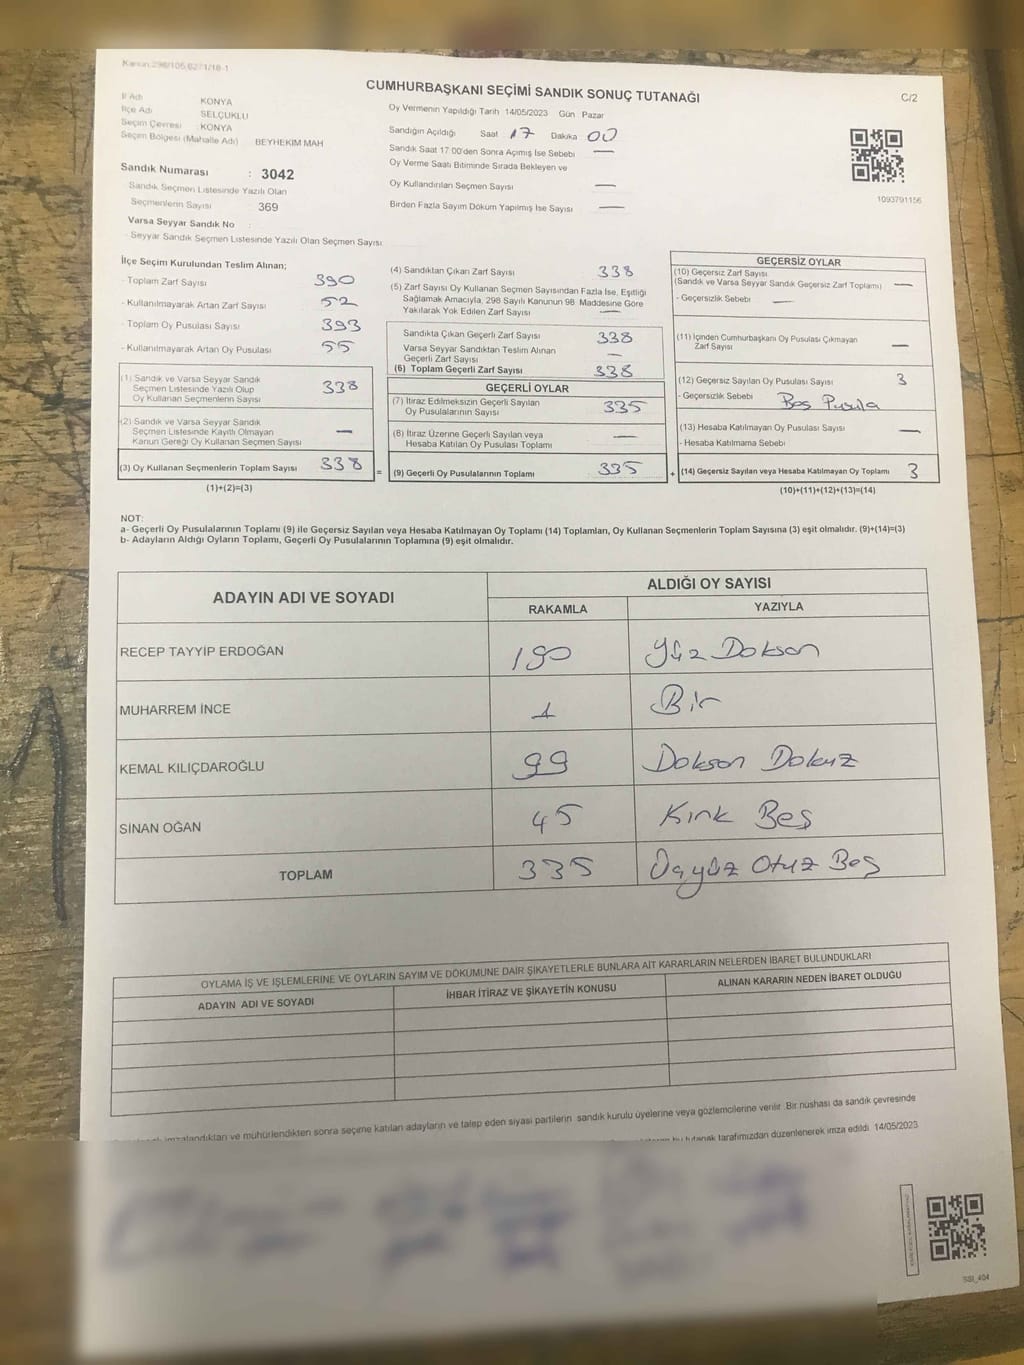 Kanun:298/105,6271/18-1
CUMHURBAŞKANI SEÇİMİ SANDIK SONUÇ TUTANAĞI
C/2
İl Adı KONYA
İlçe Adı SELÇUKLU
Seçim Çevresi : KONYA
Seçim Bölgesi (Mahalle Adı) BEYHEKIM MAH
Sandık Numarası : 3042
Sandık Seçmen Listesinde Yazılı Olan
Seçmenlerin Sayısı 369
Varsa Seyyar Sandık No
Seyyar Sandık Seçmen Listesinde Yazılı Olan Seçmen Sayısı
Oy Vermenin Yapıldığı Tarih 14/05/2023 Gün Pazar
Sandığın Açıldığı Saat 17 Dakika 00
Sandık Saat 17:00'den Sonra Açımış İse Sebebi —
Oy Verme Saati Bitiminde Sırada Bekleyen ve
Oy Kullandırılan Seçmen Sayısı —
Birden Fazla Sayım Döküm Yapılmış İse Sayısı —
1093791156
İlçe Seçim Kurulundan Teslim Alınan;
- Toplam Zarf Sayısı 390
- Kullanılmayarak Artan Zarf Sayısı 52
- Toplam Oy Pusulası Sayısı 393
- Kullanılmayarak Artan Oy Pusulası 55
(1) Sandık ve Varsa Seyyar Sandık
Seçmen Listesinde Yazılı Olup
Oy Kullanan Seçmenlerin Sayısı 338
(2) Sandık ve Varsa Seyyar Sandık
Seçmen Listesinde Kayıtlı Olmayan
Kanun Gereği Oy Kullanan Seçmen Sayısı —
(3) Oy Kullanan Seçmenlerin Toplam Sayısı 338 =
(1)+(2)=(3)
(4) Sandıktan Çıkan Zarf Sayısı 338
(5) Zarf Sayısı Oy Kullanan Seçmen Sayısından Fazla İse, Eşitliği
Sağlamak Amacıyla, 298 Sayılı Kanunun 98. Maddesine Göre
Yakılarak Yok Edilen Zarf Sayısı —
Sandıkta Çıkan Geçerli Zarf Sayısı 338
Varsa Seyyar Sandıktan Teslim Alınan
Geçerli Zarf Sayısı —
(6) Toplam Geçerli Zarf Sayısı 338
GEÇERLİ OYLAR
(7) İtiraz Edilmeksizin Geçerli Sayılan
Oy Pusulalarının Sayısı 335
(8) İtiraz Üzerine Geçerli Sayılan veya
Hesaba Katılan Oy Pusulası Toplamı —
(9) Geçerli Oy Pusulalarının Toplamı 335 +
GEÇERSİZ OYLAR
(10) Geçersiz Zarf Sayısı
(Sandık ve Varsa Seyyar Sandık Geçersiz Zarf Toplamı) —
- Geçersizlik Sebebi —
(11) İçinden Cumhurbaşkanı Oy Pusulası Çıkmayan
Zarf Sayısı —
(12) Geçersiz Sayılan Oy Pusulası Sayısı 3
- Geçersizlik Sebebi Boş Pusula
(13) Hesaba Katılmayan Oy Pusulası Sayısı —
- Hesaba Katılmama Sebebi
(14) Geçersiz Sayılan veya Hesaba Katılmayan Oy Toplamı 3
(10)+(11)+(12)+(13)=(14)
NOT:
a- Geçerli Oy Pusulalarının Toplamı (9) ile Geçersiz Sayılan veya Hesaba Katılmayan Oy Toplamı (14) Toplamları, Oy Kullanan Seçmenlerin Toplam Sayısına (3) eşit olmalıdır. (9)+(14)=(3)
b- Adayların Aldığı Oyların Toplamı, Geçerli Oy Pusulalarının Toplamına (9) eşit olmalıdır.
ADAYIN ADI VE SOYADI ALDIĞI OY SAYISI
RAKAMLA YAZIYLA
RECEP TAYYİP ERDOĞAN 190 Yüz Doksan
MUHARREM İNCE 1 Bir
KEMAL KILIÇDAROĞLU 99 Doksan Dokuz
SİNAN OĞAN 45 Kırk Beş
TOPLAM 335 Üçyüz Otuz Beş
OYLAMA İŞ VE İŞLEMLERİNE VE OYLARIN SAYIM VE DÖKÜMÜNE DAİR ŞİKAYETLERLE BUNLARA AİT KARARLARIN NELERDEN İBARET BULUNDUKLARI
ADAYIN ADI VE SOYADI İHBAR İTİRAZ VE ŞİKAYETİN KONUSU ALINAN KARARIN NEDEN İBARET OLDUĞU
imzalandıktan ve mühürlendikten sonra seçime katılan adayların ve talep eden siyasi partilerin sandık kurulu üyelerine veya gözlemcilerine verilir. Bir nüshası da sandık çevresinde
bu tutanak tarafımızdan düzenlenerek imza edildi. 14/05/2023
SSI_404